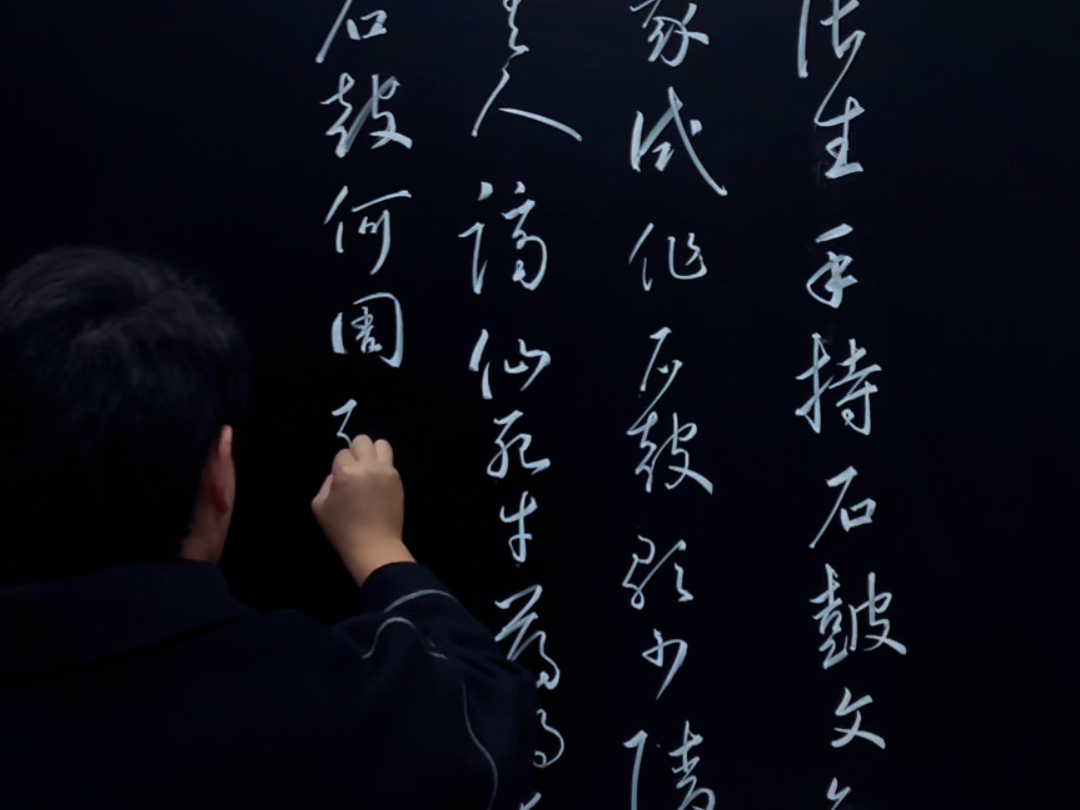 张生手持石鼓文
我试作石鼓歌少陵
人谪仙死才薄
石鼓何周